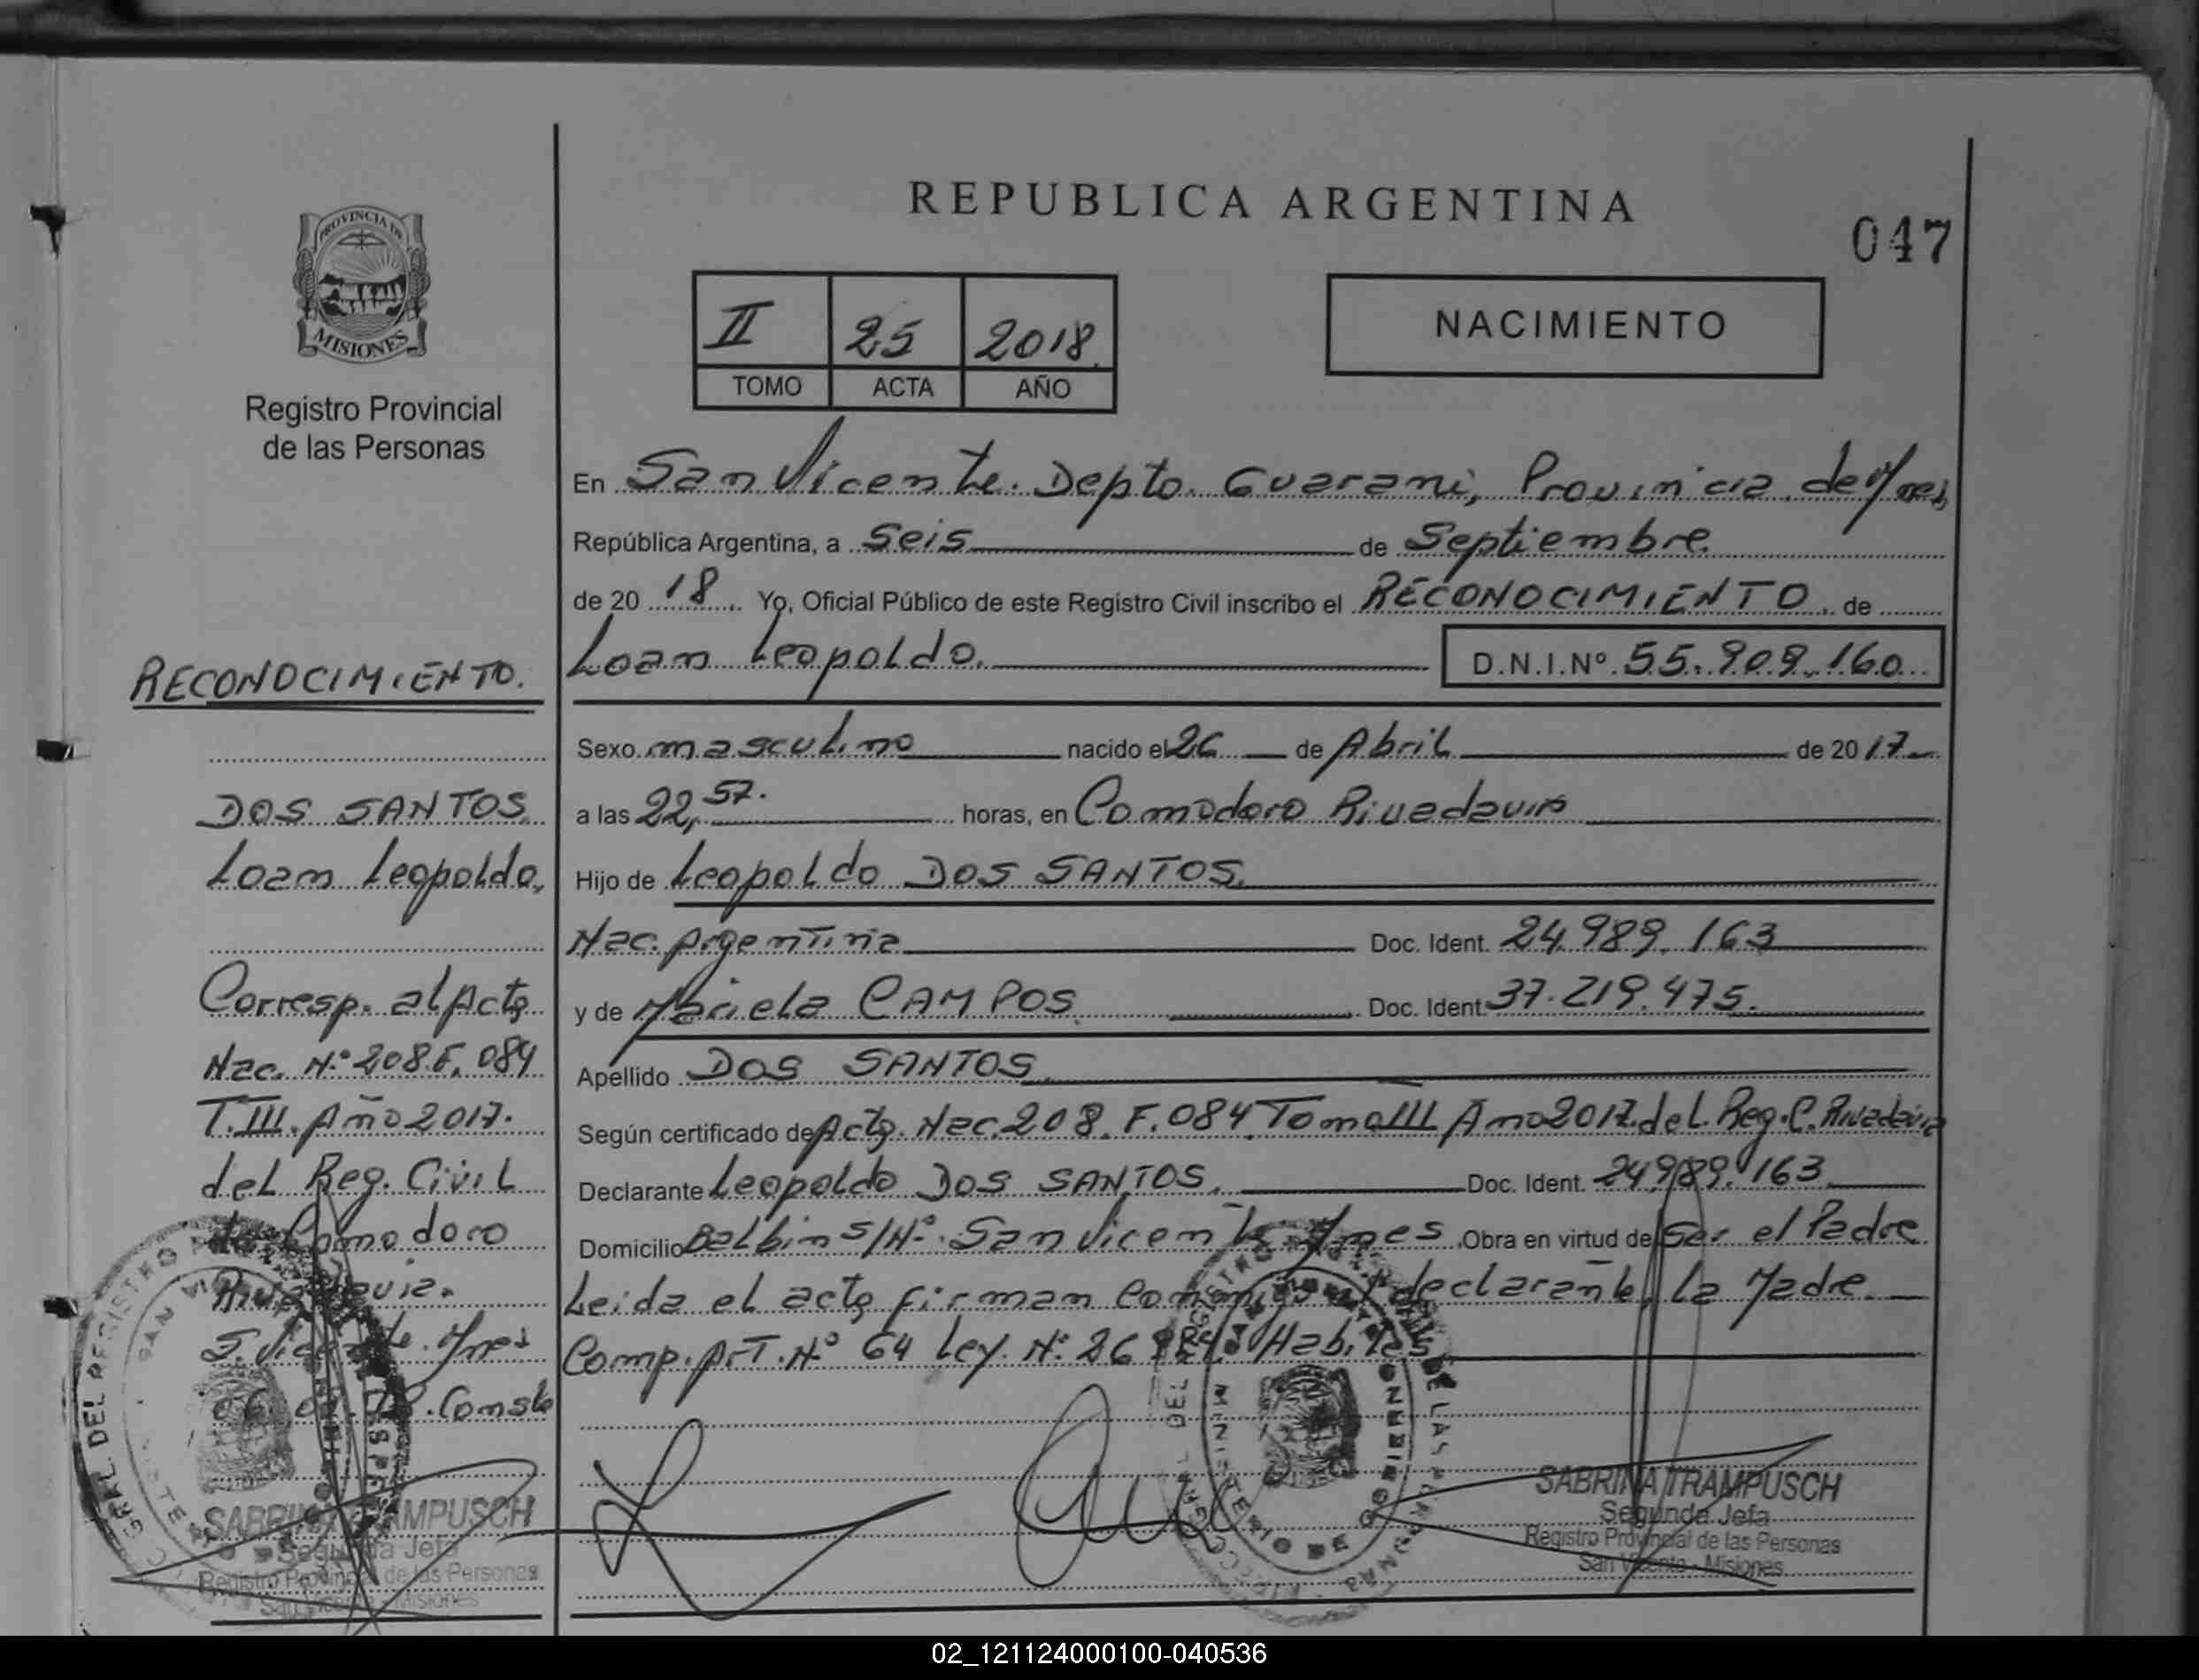 REPUBLICA ARGENTINA
047
PROVINCIA DE
MISIONES
Registro Provincial
de las Personas
II 25 2018
TOMO ACTA AÑO
NACIMIENTO
En San Vicente. Depto. Guarani, Provincia de Mnes,
República Argentina, a Seis de Septiembre
de 20 18 Yo, Oficial Público de este Registro Civil inscribo el RECONOCIMIENTO de
Loan Leopoldo. D.N.I.Nº 55.909.160
Sexo masculino nacido el 26 de Abril de 20 17
a las 22,57. horas, en Comodoro Rivadavia
Hijo de Leopoldo DOS SANTOS.
Nac. Argentina Doc. Ident. 24.989.163
y de Mariela CAMPOS Doc. Ident 37.219.475.
Apellido DOS SANTOS
Según certificado de Acta. Nac. 208. F. 084 Tomo III Año 2017. del. Reg. C. Rivadavia
Declarante Leopoldo DOS SANTOS. Doc. Ident. 24.989.163
Domicilio Balbin S/Nº. San Vicente Mnes. Obra en virtud de Ser el Padre
Leida el acta firman Conmigo el declarante, la Madre
Comp. Art. Nº 64 Ley. Nº 26 Habiles
RECONOCIMIENTO.
DOS SANTOS
Loan Leopoldo,
Corresp. al Acta
Nac. Nº 208. F. 084
T. III. Año 2017.
del Reg. Civil
de Comodoro
Rivadavia.
S. Vicente. Mnes
Conste
SABRINA TRAMPUSCH
Segunda Jefa
Registro Provincial de las Personas
San Vicente - Misiones
SABRINA TRAMPUSCH
Segunda Jefa
Registro Provincial de las Personas
San Vicente - Misiones
02_121124000100-040536